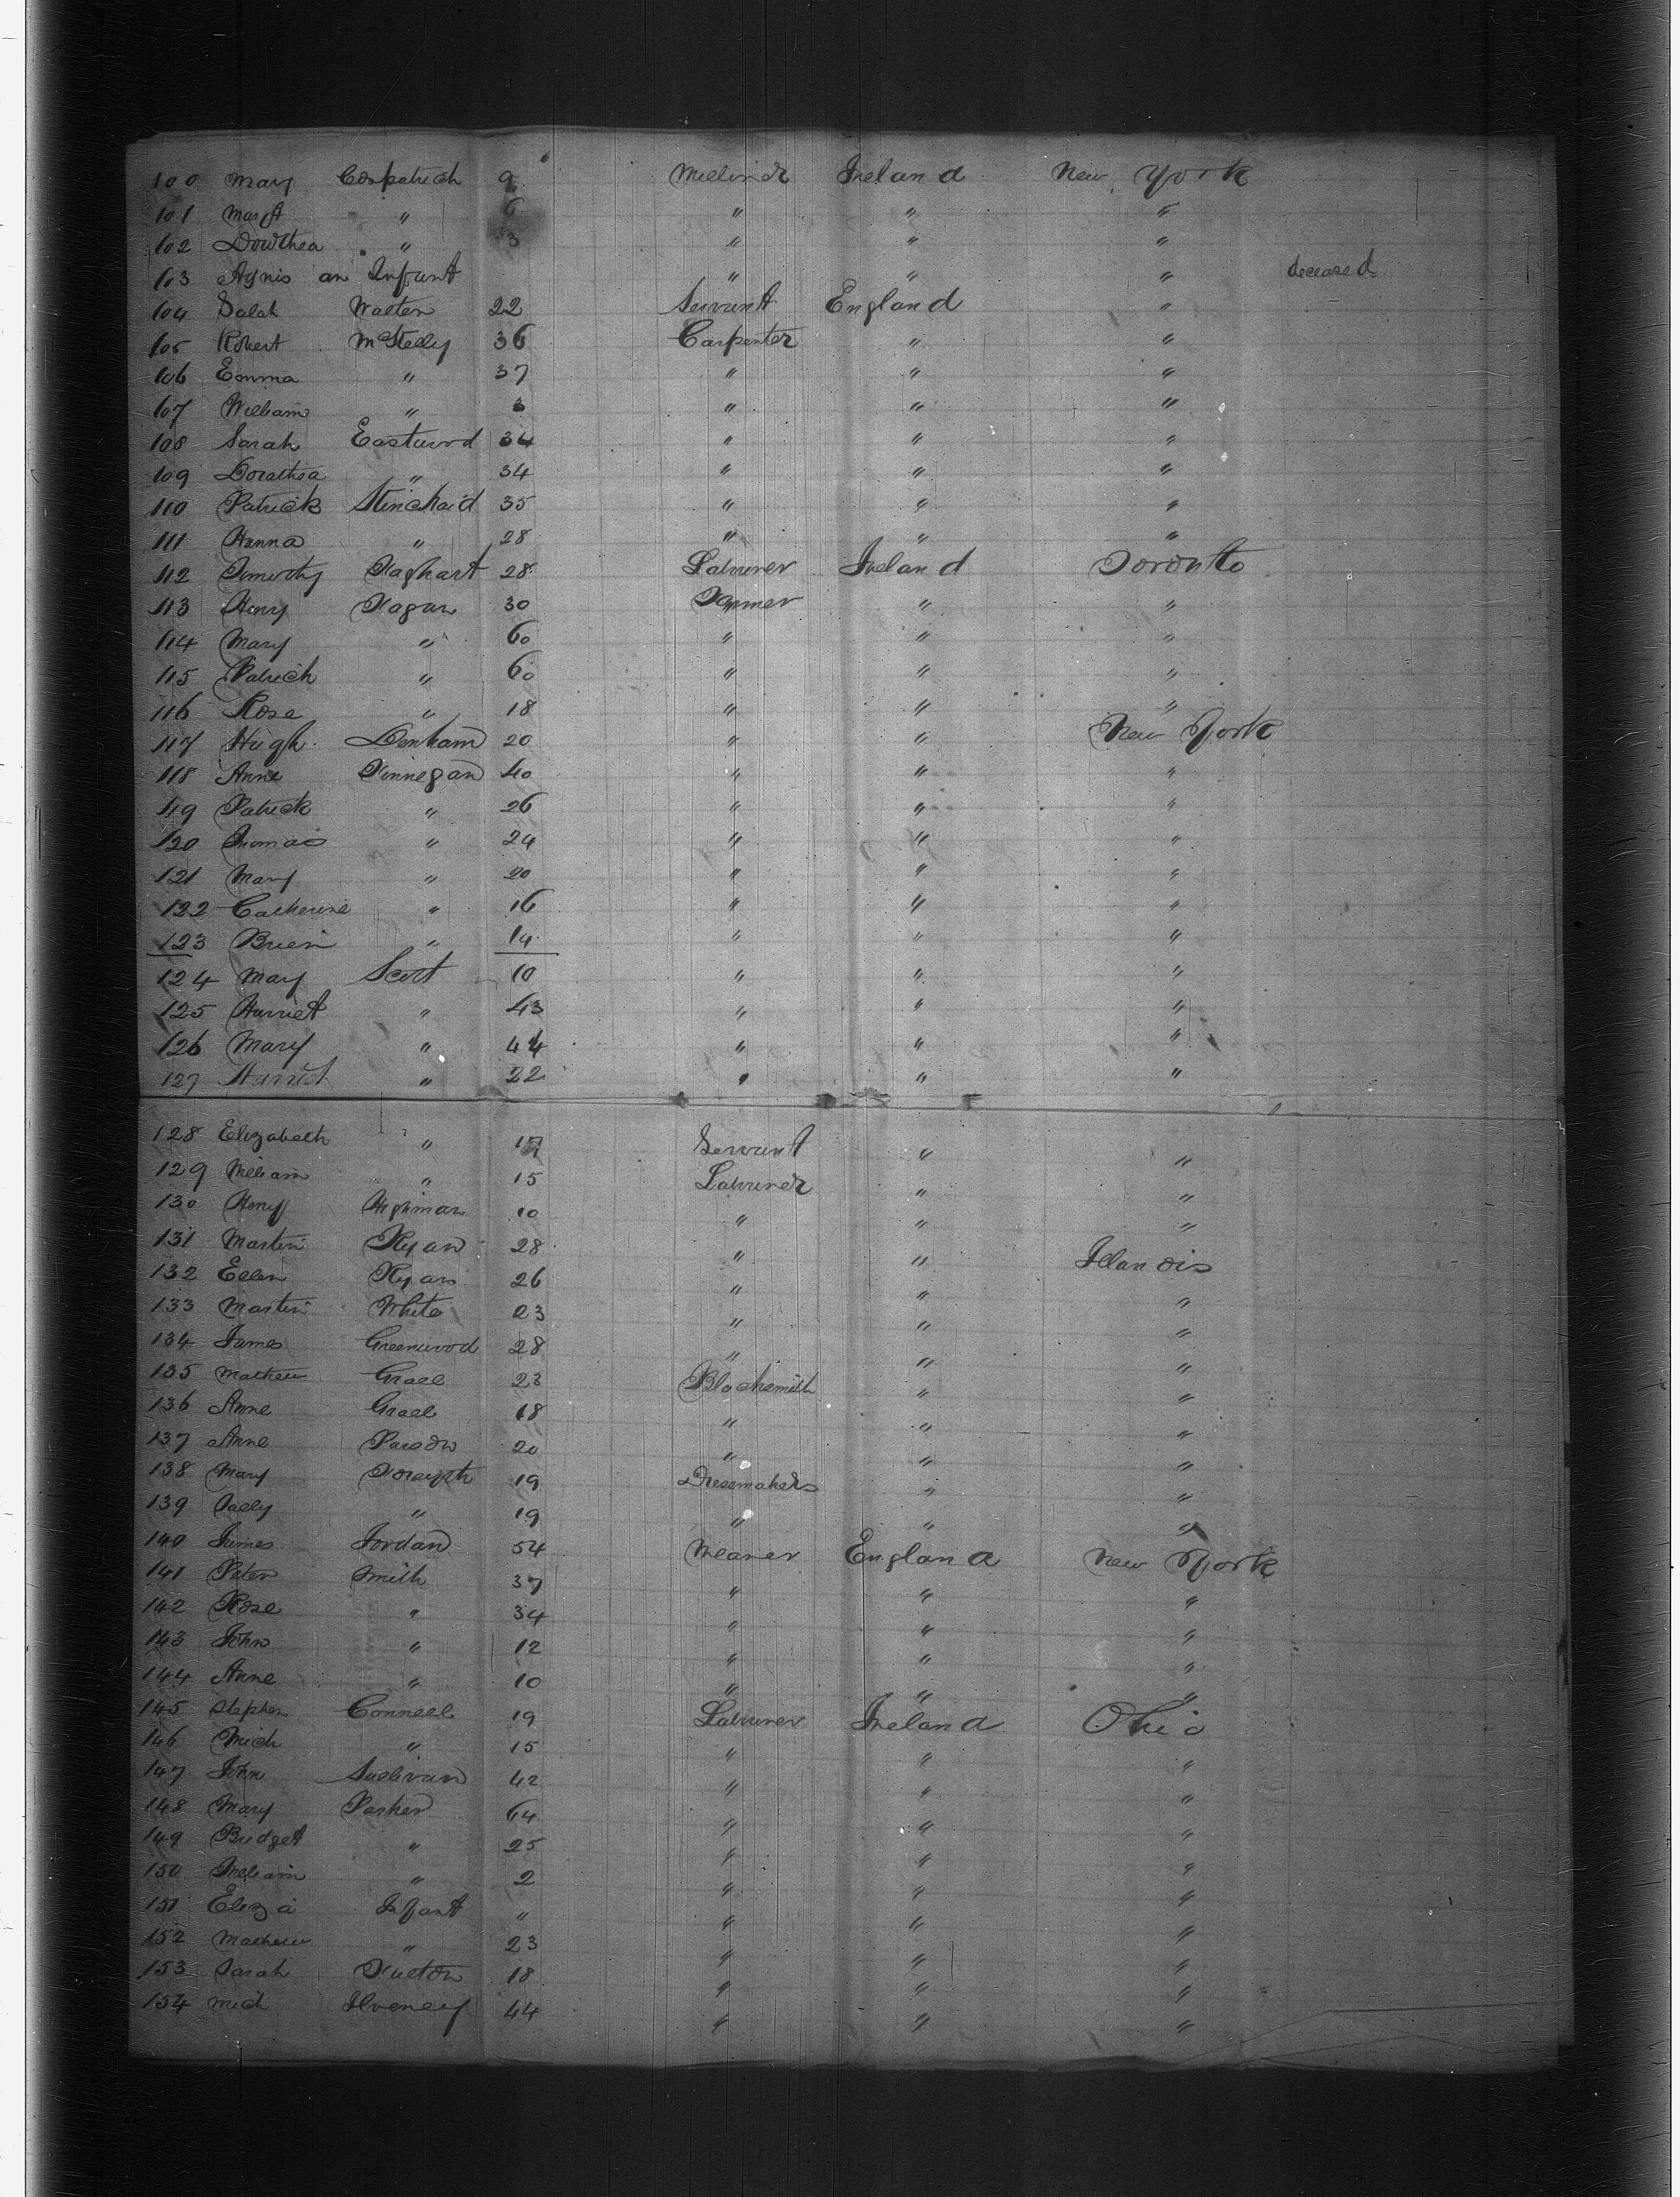 100 Mary Cospatrich 9 Milliner Ireland New York
101 Margt " 6 " " "
102 Dowthea " 3 " " "
103 Agnis an Infant " " " deceased
104 Salah Walter 22 Servant England "
105 Robert McSteely 36 Carpenter " "
106 Emma " 37 " " "
107 William " 3 " " "
108 Sarah Eastwood 34 " " "
109 Dorathea " 34 " " "
110 Patrick Stinchaid 35 " " "
111 Hanna " 28 " " "
112 Timothy 28 Labourer Ireland Toronto
113 Fagan 30 Farmer " "
114 Mary " 60 " " "
115 Patrich " 60 " " "
116 Rose " 18 " " "
117 Hugh Denham 20 " " New York
118 Anne Finnegan 40 " " "
119 Patrick " 26 " " "
120 Thomas " 24 " " "
121 Mary " 20 " " "
122 Catherine " 16 " " "
123 Brien " 14 " " "
124 Mary Scott 10 " " "
125 Harriet " 43 " " "
126 Mary " 44 " " "
127 Harriet " 22 " " "
128 Elizabeth " 17 Servant " "
129 William " 15 Labourer " "
130 Henry Highman 10 " " "
131 Martin Ryan 28 " " Illanois
132 Ellen Ryan 26 " " "
133 Martin White 23 " " "
134 James Greenwood 28 " " "
135 Mathew Grael 23 Blachsmith " "
136 Anne Grael 18 " " "
137 Anne Parson 20 " " "
138 Mary Forsyth 19 Dressmakers " "
139 " 19 " " "
140 James Jordan 54 Weaver England New York
141 Peter Smith 37 " " "
142 Rose " 34 " " "
143 John " 12 " " "
144 Anne " 10 " " "
145 Stephen Connell 19 Labourer Ireland Ohio
146 Mich " 15 " " "
147 John Sullivan 42 " " "
148 Mary Parker 64 " " "
149 Bridget " 25 " " "
150 William " 2 " " "
151 Eliza Infant " " " "
152 Mathew " 23 " " "
153 Sarah Fulton 18 " " "
154 Mich 44 " " "